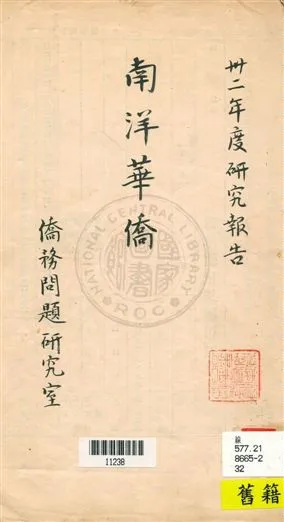 卅二年度研究報告
南洋華僑
僑務問題研究室
NATIONAL CENTRAL LIBRARY
國家圖書館
R O C
11238
577.21
8665-2
32
舊籍